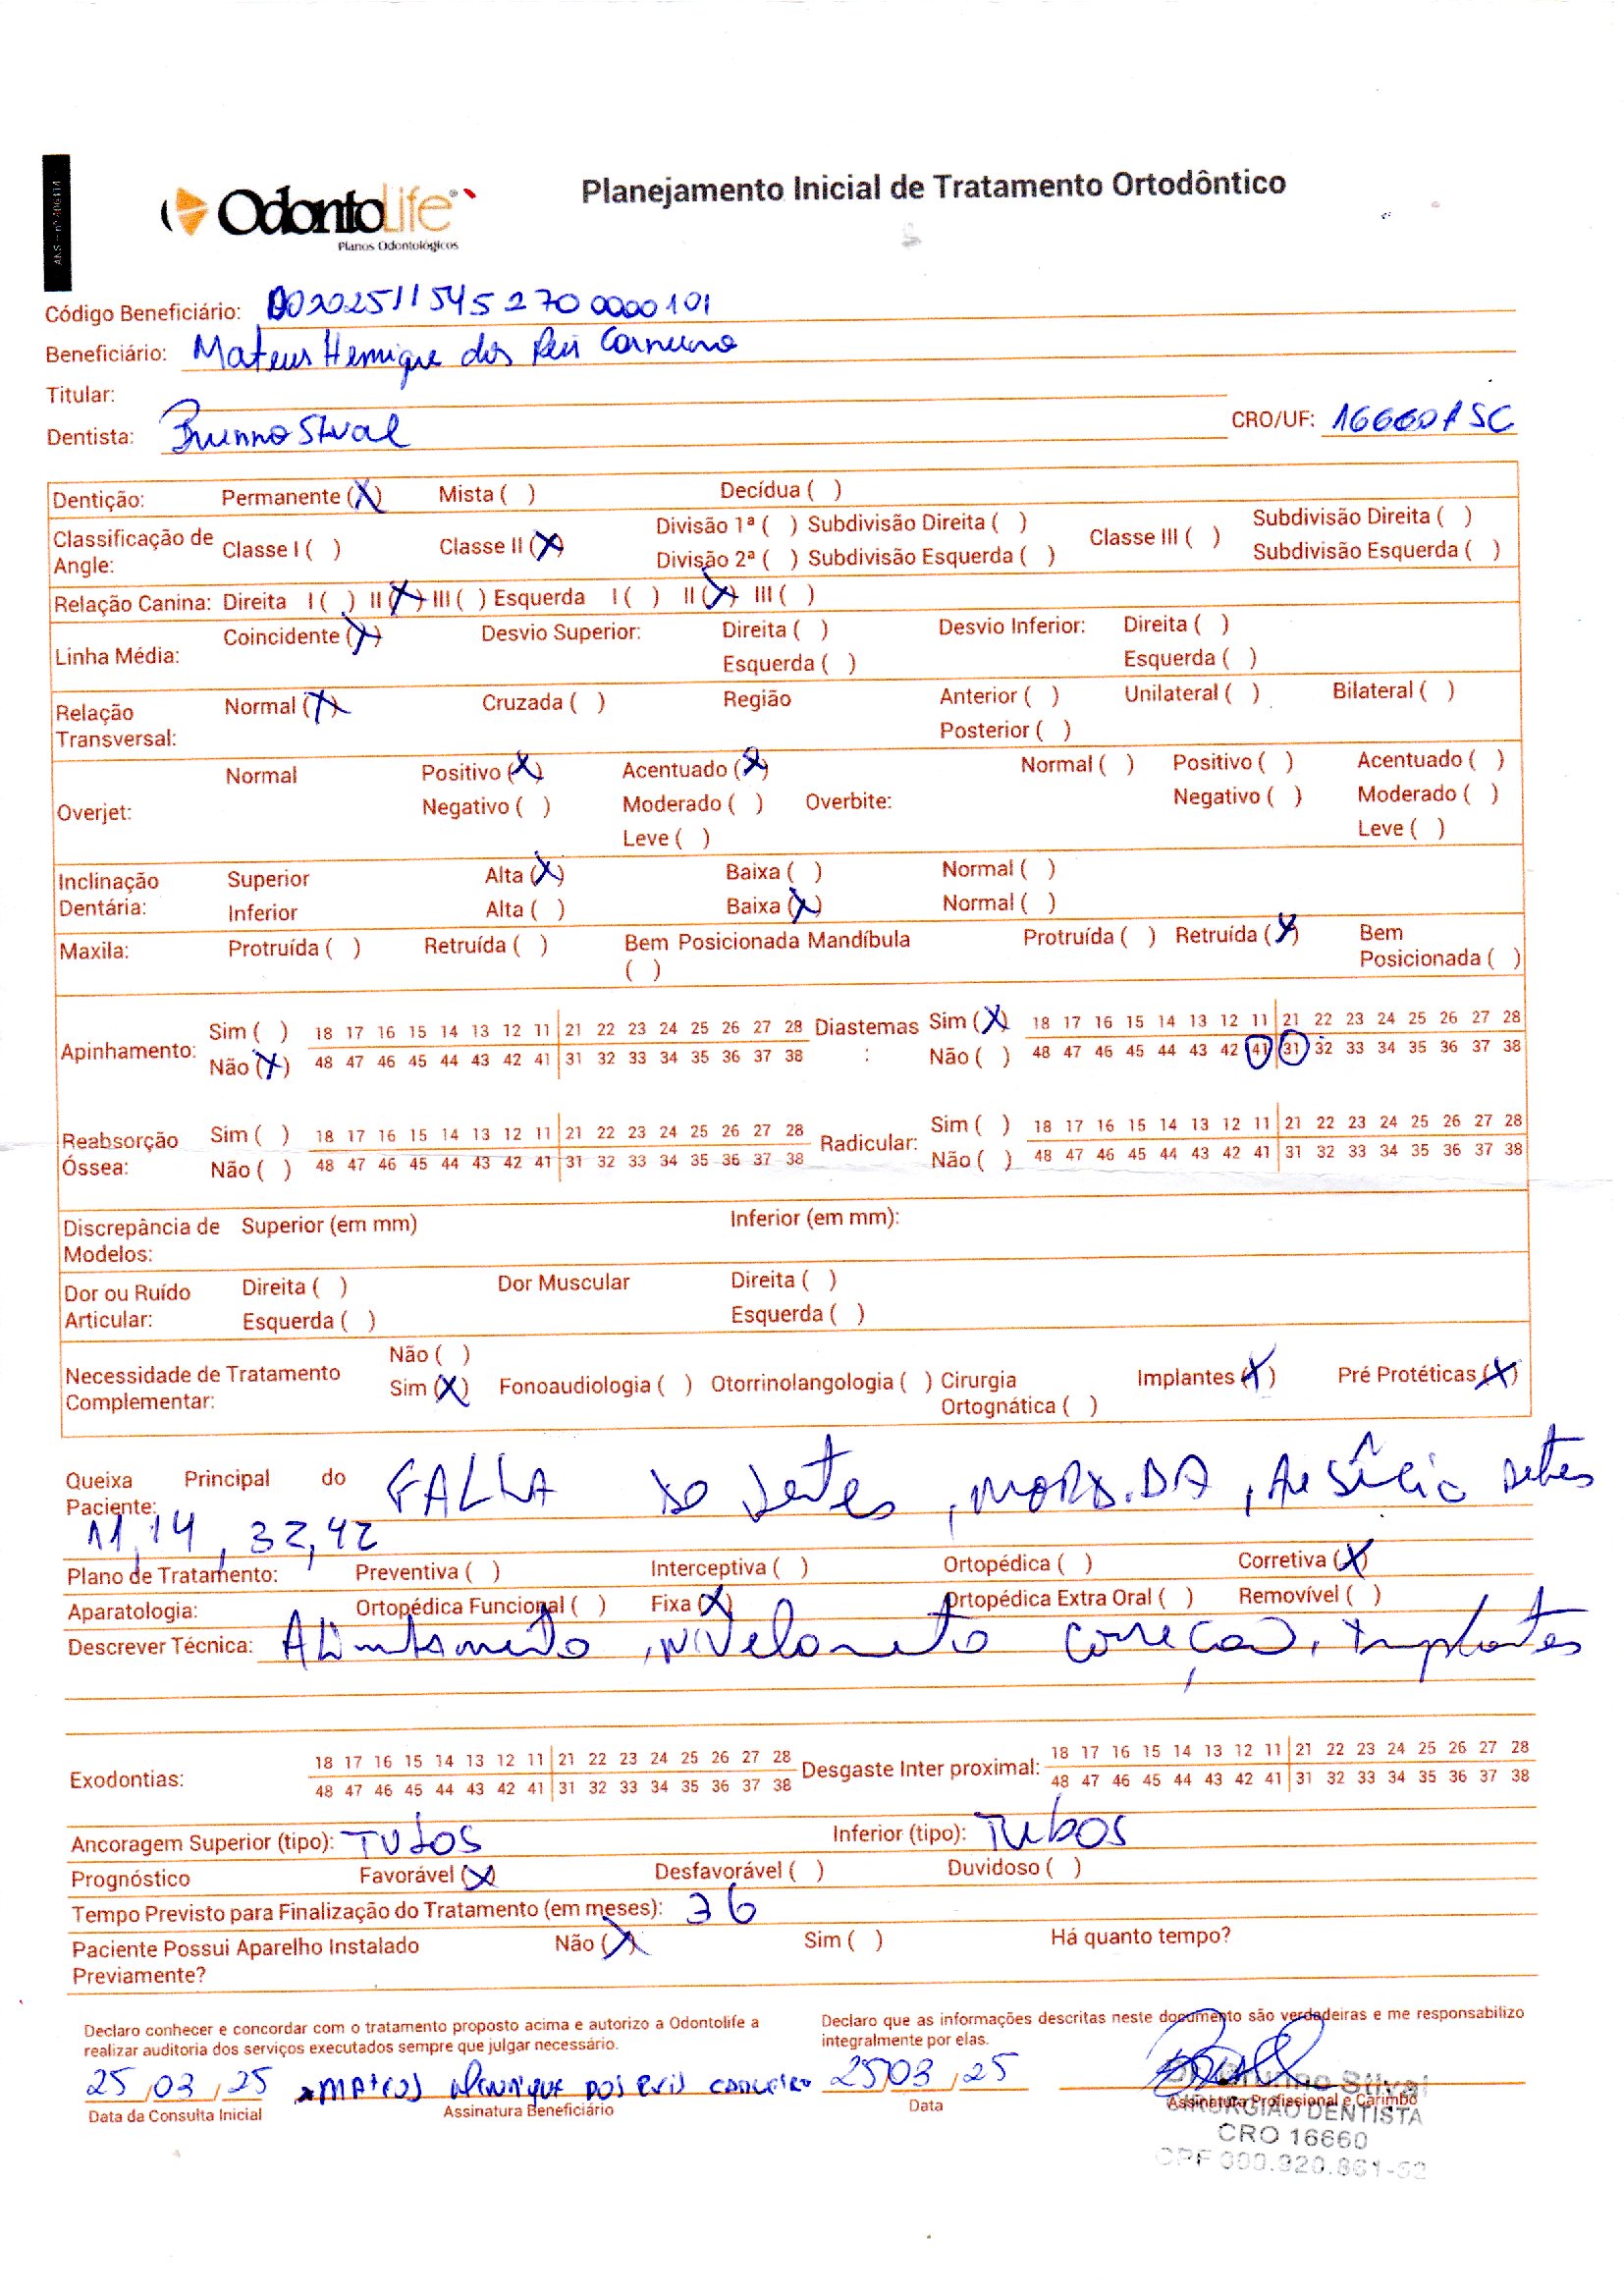 ANS - nº 406414
OdontoLife®
Planos Odontológicos
Planejamento Inicial de Tratamento Ortodôntico
Código Beneficiário: 002025115452700000101
Beneficiário: Mateus Henrique dos Reis Carneiro
Titular:
Dentista: Brunno Stival CRO/UF: 16660 / SC
Dentição: Permanente (X) Mista ( ) Decídua ( )
Classificação de Angle: Classe I ( ) Classe II (X) Divisão 1ª ( ) Subdivisão Direita ( ) Classe III ( ) Subdivisão Direita ( )
Divisão 2ª ( ) Subdivisão Esquerda ( ) Subdivisão Esquerda ( )
Relação Canina: Direita I ( ) II (X) III ( ) Esquerda I ( ) II (X) III ( )
Linha Média: Coincidente (X) Desvio Superior: Direita ( ) Desvio Inferior: Direita ( )
Esquerda ( ) Esquerda ( )
Relação Transversal: Normal (X) Cruzada ( ) Região Anterior ( ) Unilateral ( ) Bilateral ( )
Posterior ( )
Overjet: Normal Positivo (X) Acentuado (X) Overbite: Normal ( ) Positivo ( ) Acentuado ( )
Negativo ( ) Moderado ( ) Negativo ( ) Moderado ( )
Leve ( ) Leve ( )
Inclinação Dentária: Superior Alta (X) Baixa ( ) Normal ( )
Inferior Alta ( ) Baixa (X) Normal ( )
Maxila: Protruída ( ) Retruída ( ) Bem Posicionada ( ) Mandíbula Protruída ( ) Retruída (X) Bem Posicionada ( )
Apinhamento: Sim ( ) 18 17 16 15 14 13 12 11 21 22 23 24 25 26 27 28 Diastemas : Sim (X) 18 17 16 15 14 13 12 11 21 22 23 24 25 26 27 28
Não (X) 48 47 46 45 44 43 42 41 31 32 33 34 35 36 37 38 Não ( ) 48 47 46 45 44 43 42 41 31 32 33 34 35 36 37 38
Reabsorção Óssea: Sim ( ) 18 17 16 15 14 13 12 11 21 22 23 24 25 26 27 28 Radicular: Sim ( ) 18 17 16 15 14 13 12 11 21 22 23 24 25 26 27 28
Não ( ) 48 47 46 45 44 43 42 41 31 32 33 34 35 36 37 38 Não ( ) 48 47 46 45 44 43 42 41 31 32 33 34 35 36 37 38
Discrepância de Modelos: Superior (em mm) Inferior (em mm):
Dor ou Ruído Articular: Direita ( ) Dor Muscular Direita ( )
Esquerda ( ) Esquerda ( )
Necessidade de Tratamento Complementar: Não ( )
Sim (X) Fonoaudiologia ( ) Otorrinolangologia ( ) Cirurgia Ortognática ( ) Implantes (X) Pré Protéticas (X)
Queixa Principal do Paciente: FALTA de dentes, MORDIDA, Ausência dentes
11, 14, 32, 42
Plano de Tratamento: Preventiva ( ) Interceptiva ( ) Ortopédica ( ) Corretiva (X)
Aparatologia: Ortopédica Funcional ( ) Fixa (X) Ortopédica Extra Oral ( ) Removível ( )
Descrever Técnica: Alinhamento, Nivelamento Correção, Implantes
Exodontias: 18 17 16 15 14 13 12 11 21 22 23 24 25 26 27 28 Desgaste Inter proximal: 18 17 16 15 14 13 12 11 21 22 23 24 25 26 27 28
48 47 46 45 44 43 42 41 31 32 33 34 35 36 37 38 48 47 46 45 44 43 42 41 31 32 33 34 35 36 37 38
Ancoragem Superior (tipo): TUbOS Inferior (tipo): TUbOS
Prognóstico Favorável (X) Desfavorável ( ) Duvidoso ( )
Tempo Previsto para Finalização do Tratamento (em meses): 36
Paciente Possui Aparelho Instalado Previamente? Não (X) Sim ( ) Há quanto tempo?
Declaro conhecer e concordar com o tratamento proposto acima e autorizo a Odontolife a
realizar auditoria dos serviços executados sempre que julgar necessário.
Declaro que as informações descritas neste documento são verdadeiras e me responsabilizo
integralmente por elas.
25 / 03 / 25 MATEUS HENRIQUE DOS REIS CARNEIRO 25 / 03 / 25
Data da Consulta Inicial Assinatura Beneficiário Data Assinatura Profissional e Carimbo
CIRURGIÃO DENTISTA
CRO 16660